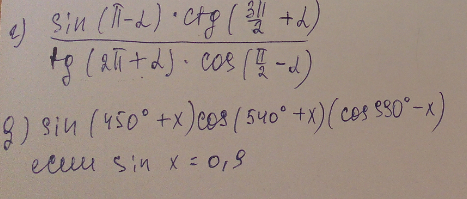 г) sin (π-α) · ctg (3π/2 + α) / tg (2π + α) · cos (π/2 - α)
д) sin (450° + x) cos (540° + x) (cos 990° - x)
если sin x = 0,9